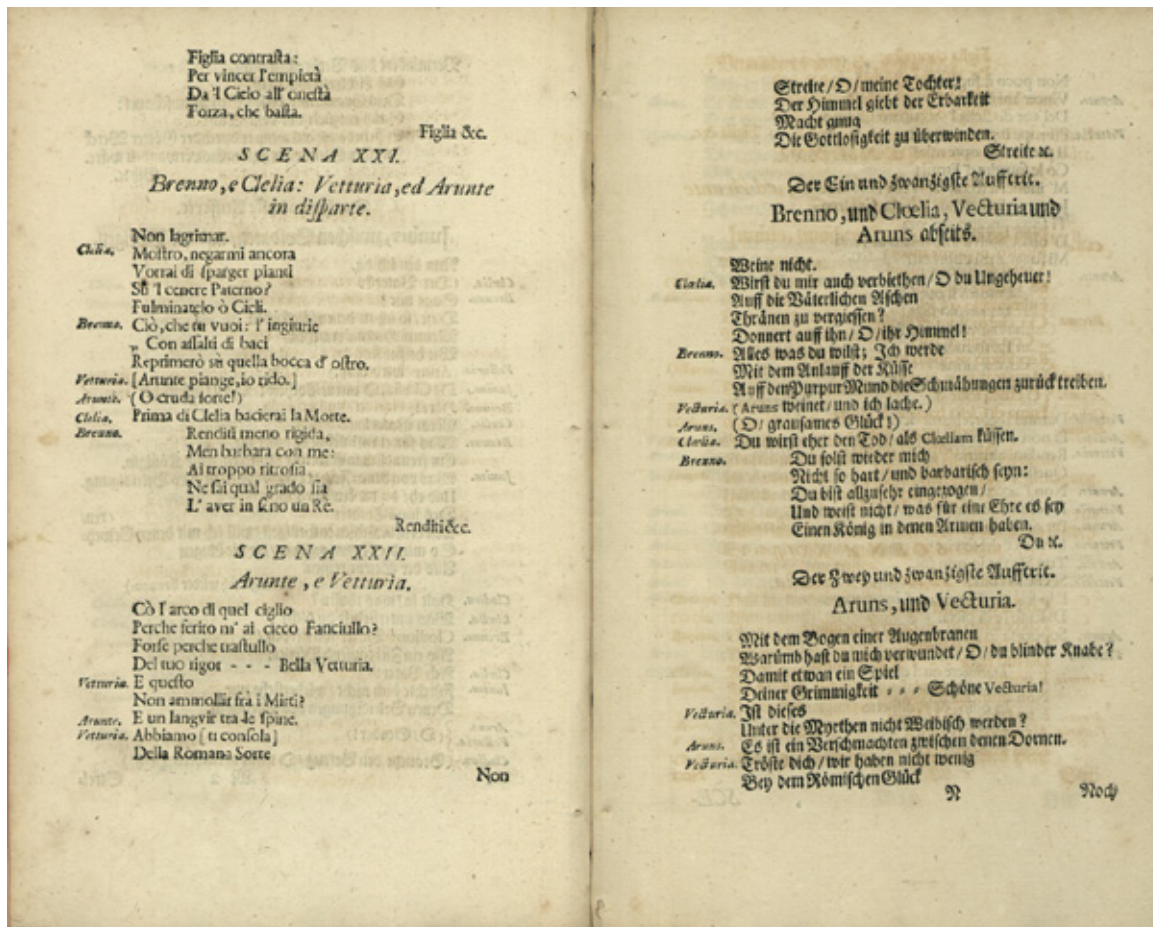 Figlia contrasta:
Per vincer l'empietà
Da 'l Cielo all' onestà
Forza, che basta.
Figlia &c.
SCENA XXI.
Brenno, e Clelia: Vetturia, ed Arunte
in disparte.
Non lagrimar.
Clelia. Mostro, negarmi ancora
Vorrai di sparger pianti
Sù 'l cenere Paterno?
Fulminatelo ò Cieli.
Brenno. Ciò, che tu vuoi: l' ingiurie
„ Con assalti di baci
Reprimerò sù quella bocca d' ostro.
Vetturia. [Arunte piange, io rido.]
Arunte. (O cruda sorte!)
Clelia. Prima di Clelia bacierai la Morte.
Brenno. Renditi meno rigida,
Men barbara con me:
Ai troppo ritrosia
Ne sai qual grado sia
L' aver in seno un Rè.
Renditi &c.
SCENA XXII.
Arunte, e Vetturia.
Cò l'arco di quel ciglio
Perche ferito m' ai cieco Fanciullo?
Forse perche trastullo
Del tuo rigor - - - Bella Vetturia.
Vetturia. E questo
Non ammollir frà i Mirti?
Arunte. E un langvir tra le spine.
Vetturia. Abbiamo [ti consola]
Della Romana Sorte
Non
Streite / O / meine Tochter!
Der Himmel giebt der Erbarkeit
Macht gnug
Die Gottlosigkeit zu überwinden.
Streite ꝛc.
Der Ein und zwanzigste Aufftrit.
Brenno, und Clœlia, Vecturia und
Aruns abseits.
Weine nicht.
Clœlia. Wirst du mir auch verbiethen / O du Ungeheuer!
Auff die Väterlichen Aschen
Thränen zu vergiessen?
Donnert auff ihn / O / ihr Himmel!
Brenno. Alles was du wilst; Ich werde
Mit dem Anlauff der Küsse
Auff den Purpur Mund die Schmähungen zurück treiben.
Vecturia. (Aruns weinet / und ich lache.)
Aruns. (O / grausames Glück!)
Clœlia. Du wirst eher den Tod / als Clœliam küssen.
Brenno. Du solst wieder mich
Nicht so hart / und barbarisch seyn:
Du bist allzusehr eingezogen /
Und weist nicht / was für eine Ehre es sey
Einen König in denen Armen haben.
Du ꝛc.
Der Zwey und zwanzigste Aufftrit.
Aruns, und Vecturia.
Mit dem Bogen einer Augenbranen
Warümb hast du mich verwundet / O / du blinder Knabe?
Damit etwan ein Spiel
Deiner Grimmigkeit - - - Schöne Vecturia!
Vecturia. Ist dieses
Unter die Myrthen nicht Weibisch werden?
Aruns. Es ist ein Verschmachten zwischen denen Dornen.
Vecturia. Tröste dich / wir haben nicht wenig
Bey dem Römischen Glück
N Noch